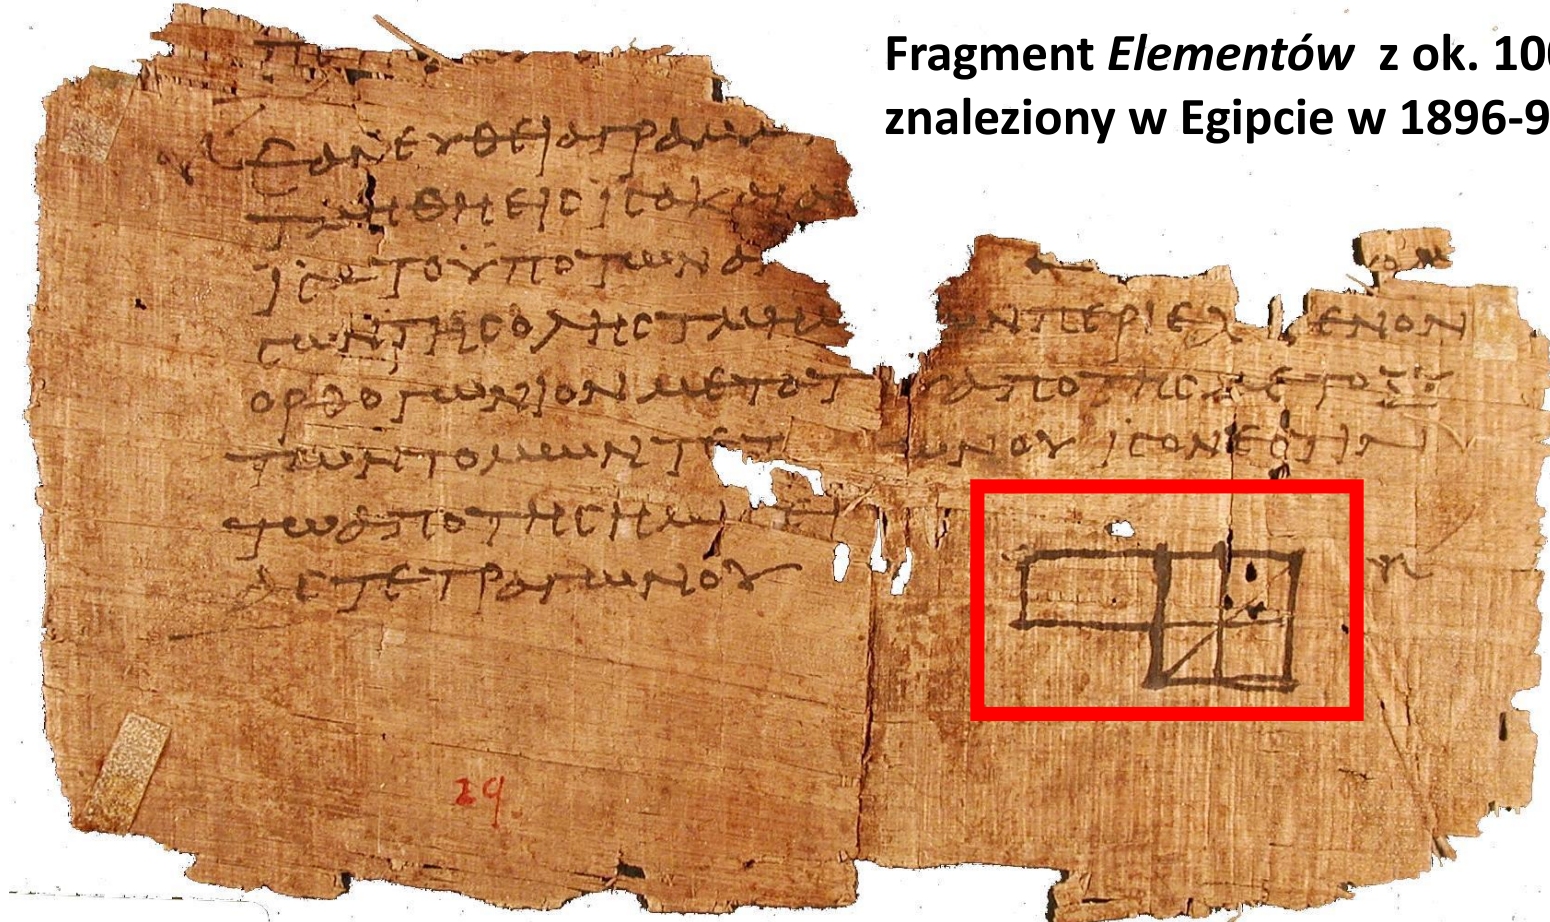 Fragment Elementów z ok.
znaleziony w Egipcie w
ΕΑΝΕΥΘΕΙΑΓΡΑΜΜ
ΤΜΗΘΗΕΙϹΙϹΑΚΑΙΑ
ΙϹΑΤΟΥΠΟΤΩΝΑ
ϹΩΝΤΗϹΟΛΗϹΤΜΗΜ ΩΝΠΕΡΙΕΧ ΕΝΟΝ
ΟΡΘΟΓΩΝΙΟΝΜΕΤΟΤ ΑΠΟΤΗϹΜΕΤΟΞΥ
ΤΩΝΤΟΜΩΝΤΕΤ ΩΝΟΥ ΙϹΟΝΕϹΤΙΝ
ΤΩΑΠΟΤΗϹΗΜΙ
ΤΕΤΡΑΓΩΝΟΥ
29